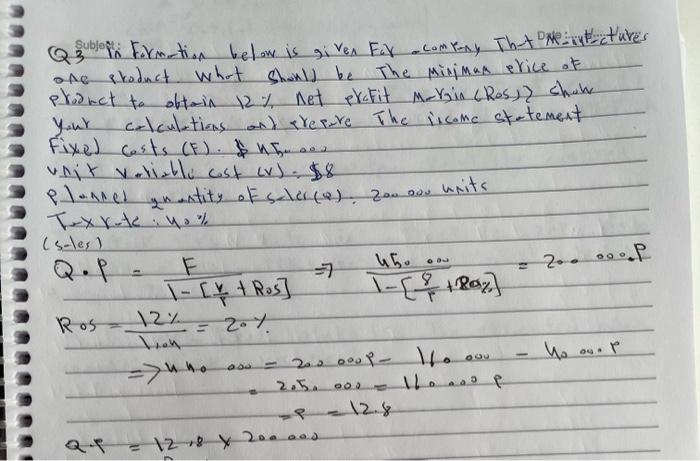 Subject:
Q3 Information below is given For a company That Manufactures
one product. What should be The Minimum price of
product to obtain 12% net profit Margin (Ros)? show
your calculations and prepare The income statement
Fixed costs (F). $ 450 000
unit variable cost (v). $8
planned quantity of sales (Q). 200 000 units
Tax rate: 40%
(sales)
Q.P = F / 1-[v/P + Ros] ⇒ 450 000 / 1-[8/P + Ros%] = 200 000.P
Ros = 12% / = 20%.
000 = 200 000P - 000 - 40 000.P
= 2.05. 000 = P
= P = 12.8
Q.P = 12.8 x 200 000